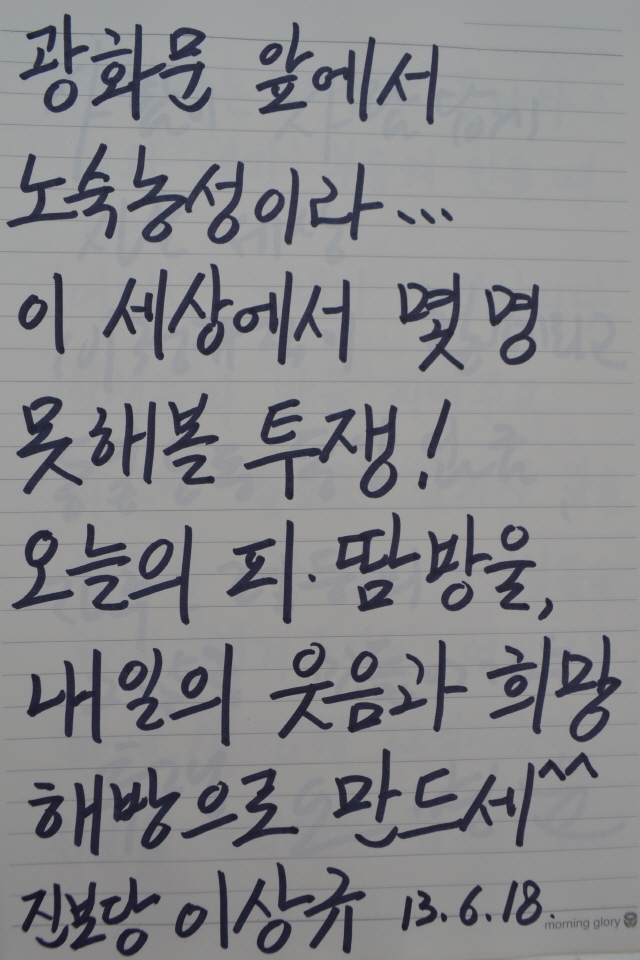 광화문 앞에서
노숙농성이라...
이 세상에서 몇 명
못해볼 투쟁!
오늘의 피·땀방울,
내일의 웃음과 희망
해방으로 만드세^^
진보당 이상규 13.6.18.
morning glory